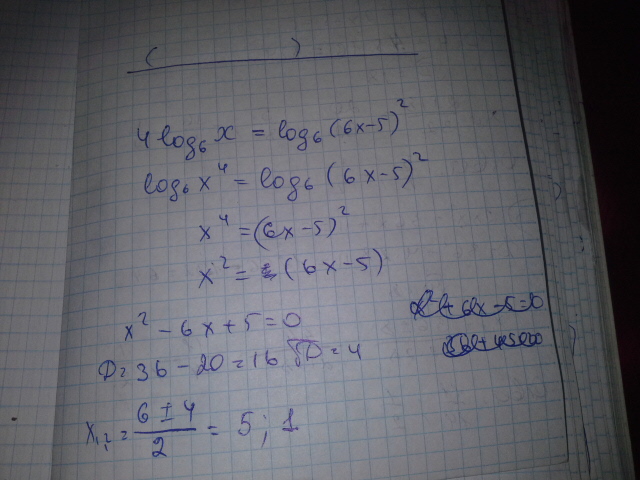 ( )
4 log₆ x = log₆ (6x-5)²
log₆ x⁴ = log₆ (6x-5)²
x⁴ = (6x-5)²
x² = (6x-5)
x² - 6x + 5 = 0
D = 36 - 20 = 16 √D = 4
x₁,₂ = (6 ± 4)/2 = 5 ; 1